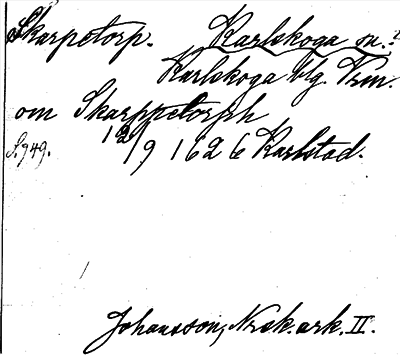 Skarpetorp. Karlskoga sn.
Karlskoga blg. Trm.
om Skarppetorph
12/9 1626 Karlstad.
S. 949.
Johansson, Nrsk. ark. II.